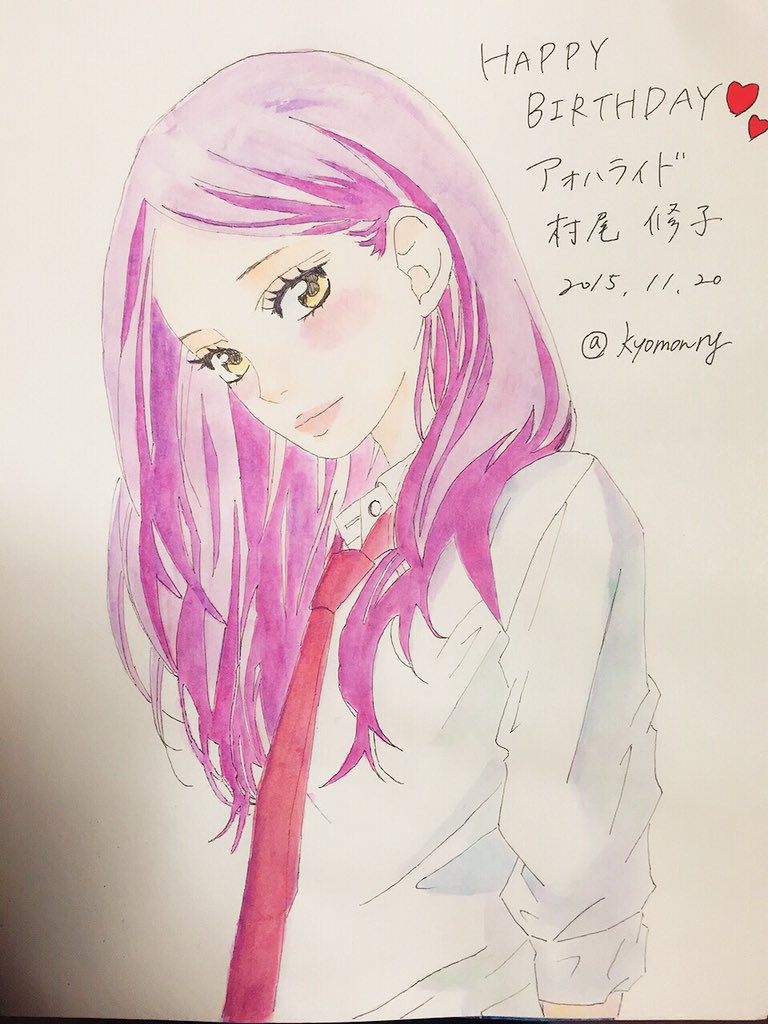 HAPPY
BIRTHDAY
アオハライド
村尾 修子
2015.11.20
@kyomonry